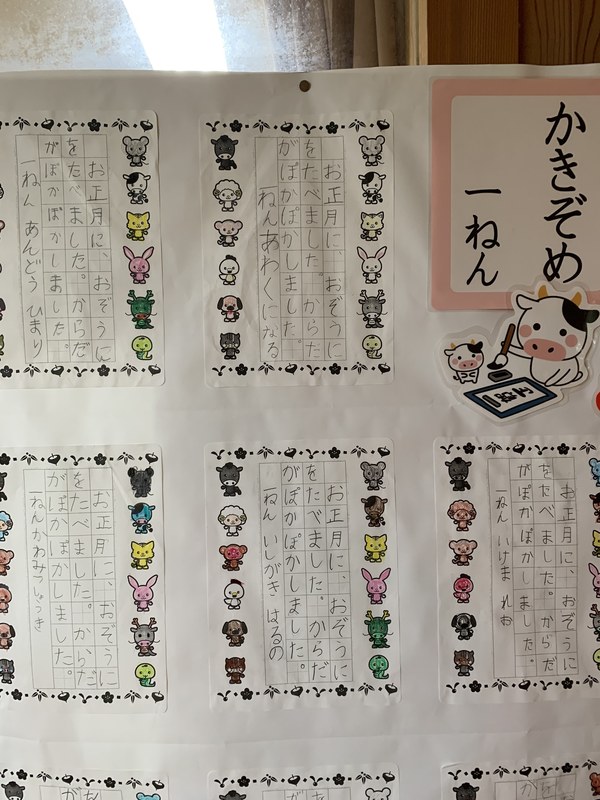 かきぞめ
一ねん
お正月に、おぞうに
をたべました。からだ
がぽかぽかしました。
一ねん あわくになる
お正月に、おぞうに
をたべました。からだ
がぽかぽかしました。
一ねん あんどう ひまり
お正月に、おぞうに
をたべました。からだ
がぽかぽかしました。
一ねん いけま れお
お正月に、おぞうに
をたべました。からだ
がぽかぽかしました。
一ねん いしがき はるの
お正月に、おぞうに
をたべました。からだ
がぽかぽかしました。
一ねん かわみつ